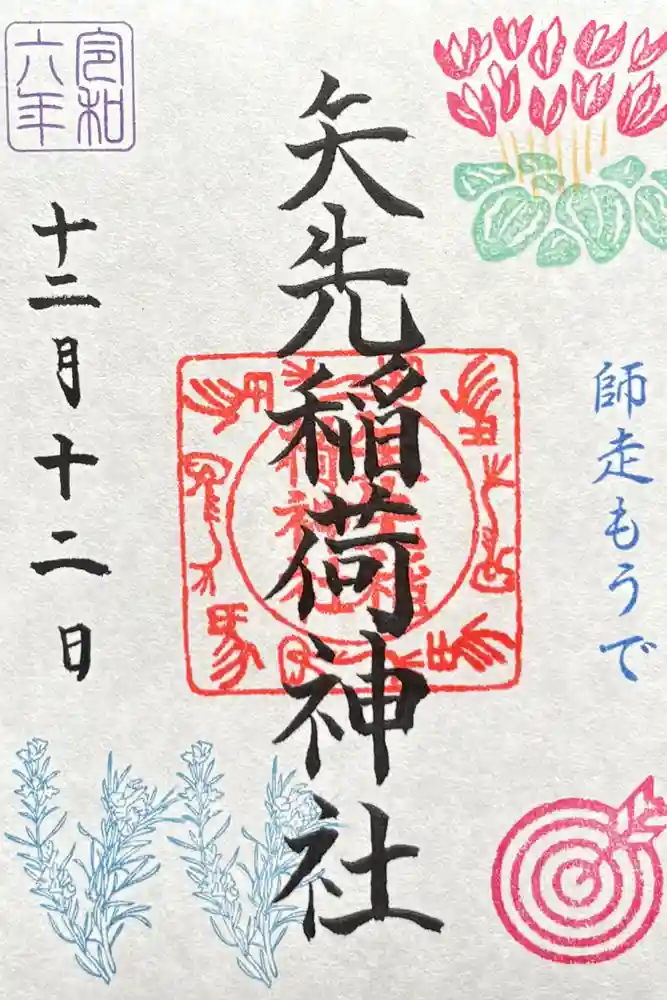 師走もうで
矢先稲荷神社
令和
六年
十二月十二日